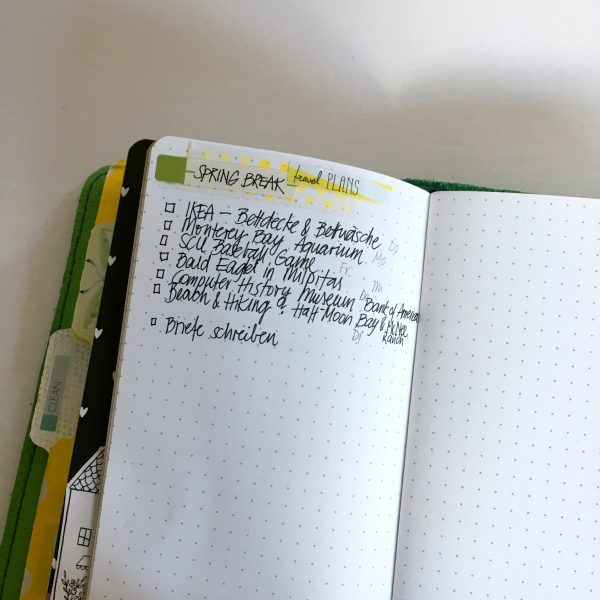 SPRING BREAK travel PLANS
IKEA – Bettdecke & Bettwäsche Do
Monterey Bay Aquarium Mo
SCU Baseball Game Fr.
Bald Eagel in Milpitas Mi
Computer History Museum Bank of America
Beach & Hiking Half Moon Bay &
Ranch
Briefe schreiben Di
CLEAN